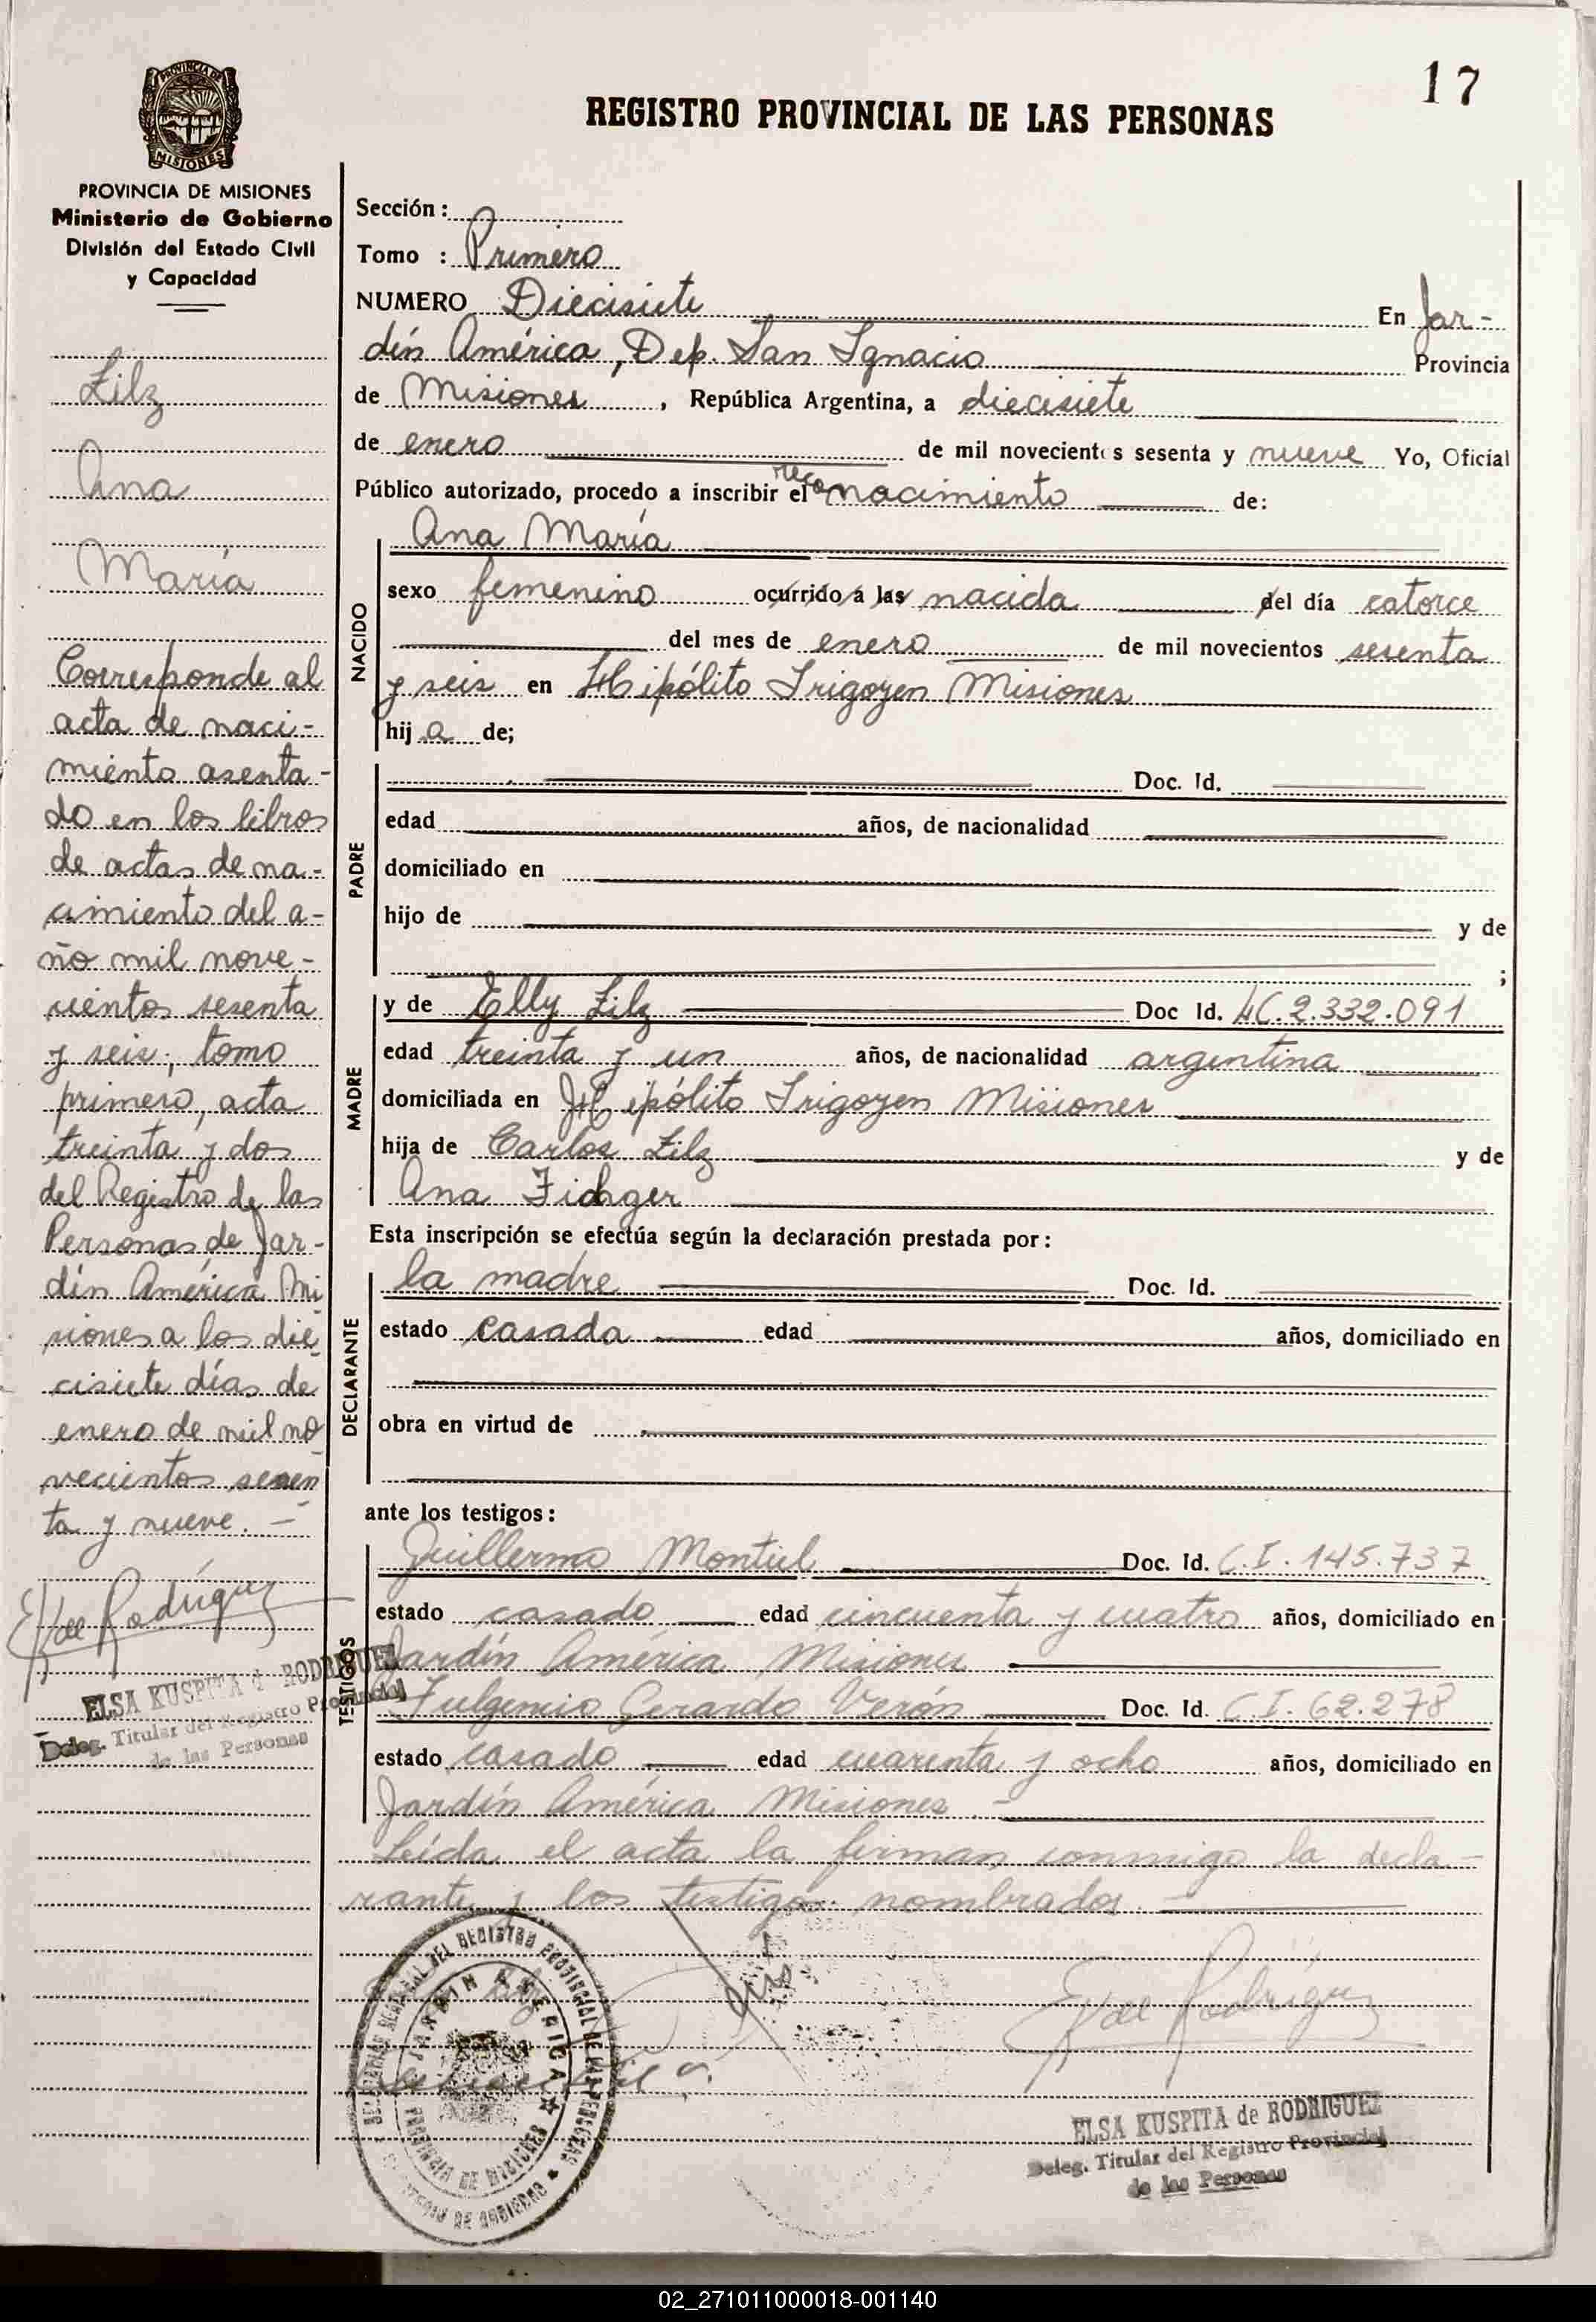 17
REGISTRO PROVINCIAL DE LAS PERSONAS
PROVINCIA DE MISIONES
Ministerio de Gobierno
División del Estado Civil
y Capacidad
Zilz
Ana
María
Corresponde al
acta de naci-
miento asenta-
do en los libros
de actas de na-
cimiento del a-
ño mil nove-
cientos sesenta
y seis, tomo
primero, acta
treinta y dos
del Registro de las
Personas de Jar-
dín América Mi
siones a los die
cisiete días de
enero de mil no
vecientos sesen
ta y nueve. -
E K de Rodríguez
ELSA KUSPITA d RODRIGUEZ
Deleg. Titular del Registro Provincial
de las Personas
Sección:
Tomo : Primero
NUMERO Diecisiete En Jar-
dín América, Dep. San Ignacio Provincia
de Misiones, República Argentina, a diecisiete
de enero de mil novecientos sesenta y nueve Yo, Oficial
Público autorizado, procedo a inscribir el reconocimiento de:
NACIDO
Ana María
sexo femenino ocurrido a las nacida del día catorce
del mes de enero de mil novecientos sesenta
y seis en Hipólito Irigoyen Misiones
hij a de;
PADRE
Doc. Id.
edad años, de nacionalidad
domiciliado en
hijo de y de
;
MADRE
y de Elly Zilz Doc Id. LC.2.332.091
edad treinta y un años, de nacionalidad argentina
domiciliada en Hipólito Irigoyen Misiones
hija de Carlos Zilz y de
Ana
Esta inscripción se efectúa según la declaración prestada por:
DECLARANTE
la madre Doc. Id.
estado casada edad años, domiciliado en
obra en virtud de
ante los testigos:
TESTIGOS
Guillermo Montiel Doc. Id. C.I. 145.737
estado casado edad cincuenta y cuatro años, domiciliado en
Jardín América Misiones
Fulgencio Gerardo Verón Doc. Id. C.I. 62.278
estado casado edad cuarenta y ocho años, domiciliado en
Jardín América Misiones. -
Leída el acta la firman conmigo la decla-
rante y los testigos nombrados.
REGISTRO PROVINCIAL DE LAS PERSONAS
JARDIN AMERICA
PROVINCIA DE MISIONES
E K de Rodríguez
ELSA KUSPITA de RODRIGUEZ
Deleg. Titular del Registro Provincial
de las Personas
02_271011000018-001140